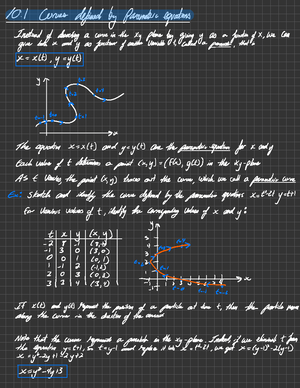 10.1 Curves defined by Parametric equations
Instead of describing a curve in the xy plane by giving y as a function of x, we can
give both x and y as functions of another variable t, called a parameter, that is
x = x(t), y = y(t)
y
x
The equations x=x(t) and y=y(t) are the parametric equations for x and y
Each value of t determines a point (x,y) = (f(t), g(t)) in the xy-plane
As t varies the point (x,y) traces out the curve, which we call a parametric curve
Ex: Sketch and identify the curve defined by the parametric equations x=t²-2t y=t+1
For various values of t, identify the corresponding values of x and y:
t x y (x,y)
-1 3 0 (3,0)
0 0 1 (0,1)
1 -1 2
2 0 3
3 3 4 (3,4)
y
x
If x(t) and y(t) represent the position of a particle at time t, then the particle moves
along the curve in the direction of the
Note that the curve represents a parabola in the xy-plane. Instead, if we eliminate t from
the equations y=t+1, so t=y-1 and replace it in x=t²-2t, we get x=(y-1)²-2(y-1)
x=y²-4y+3